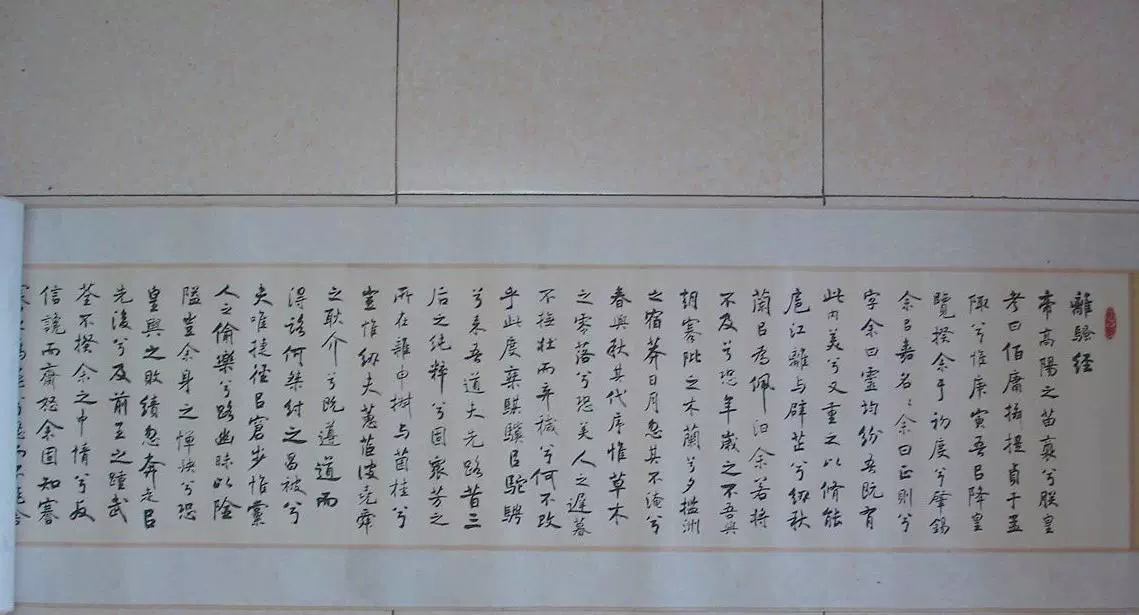 離騷经
帝高陽之苗裔兮朕皇
考曰伯庸攝提貞于孟
陬兮惟庚寅吾㠯降皇
覽揆余于初度兮肇錫
余㠯嘉名〻余曰正則兮
字余曰靈均紛吾既有
此内美兮又重之以脩能
扈江離与辟芷兮紉秋
蘭㠯為佩汩余若將
不及兮恐年歲之不吾與
朝搴阰之木蘭兮夕攬洲
之宿莽日月忽其不淹兮
春與秋其代序惟草木
之零落兮恐美人之遲暮
不撫壯而弃穢兮何不改
乎此度乘騏驥㠯駝騁
兮来吾道夫先路昔三
后之純粹兮固衆芳之
所在雜申椒与菌桂兮
豈惟紉夫蕙茝彼堯舜
之耿介兮既遵道而
得路何桀紂之昌被兮
夫唯捷徑㠯窘步惟黨
人之偷樂兮路幽昧以險
隘豈余身之憚殃兮恐
皇輿之敗績忽奔走㠯
先後兮及前王之踵武
荃不揆余之中情兮反
信讒而齌怒余固知謇